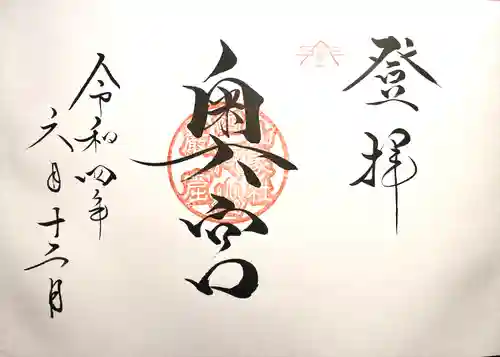 登拝
奥宮
令和四年
六月十二日